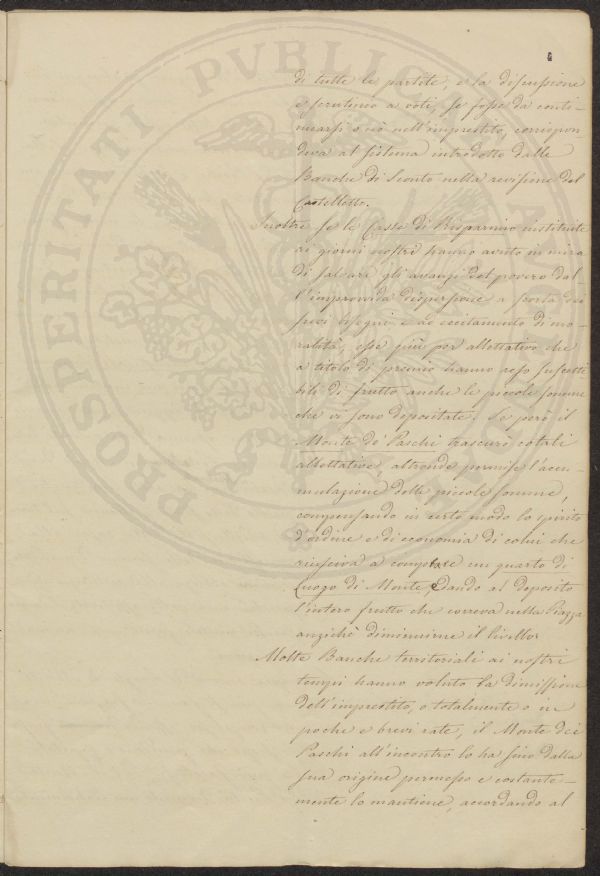 di tutte le partite, e la discussione
e scrutinio a voti, se fosse da conti-
nuarsi o nò nell'imprestito, corrispon-
deva al sistema introdotto dalle
Banche di Sconto nella revisione del
Castelletto.
Inoltre se le Casse di Risparmio instituite
ai giorni nostri hanno avuto in mira
di salvare gli avanzi del povero dal-
l'improvvida dispersione a scorta dei
suoi bisogni e ad eccitamento di mo-
ralità, esse più per allettativo che
a titolo di premio hanno reso suscetti-
bili di frutto anche le piccole somme
che vi sono depositate. Se però il
Monte de' Paschi trascurò cotali
allettative, altronde permise l'accu-
mulazione delle piccole somme,
compensando in certo modo lo spirito
d'ordine e di economia di colui che
riusciva a completare un quarto di
Luogo di Monte, dando al deposito
l'intero frutto che correva nella Piazza
anzichè diminuirne il livello.
Molte Banche territoriali ai nostri
tempi hanno voluto la dimissione
dell'imprestito, o totalmente o in
poche e brevi rate, il Monte dei
Paschi all'incontro lo ha sino dalla
sua origine permesso e costante-
mente lo mantiene, accordando al
PROSPERITATI PVBLICAE